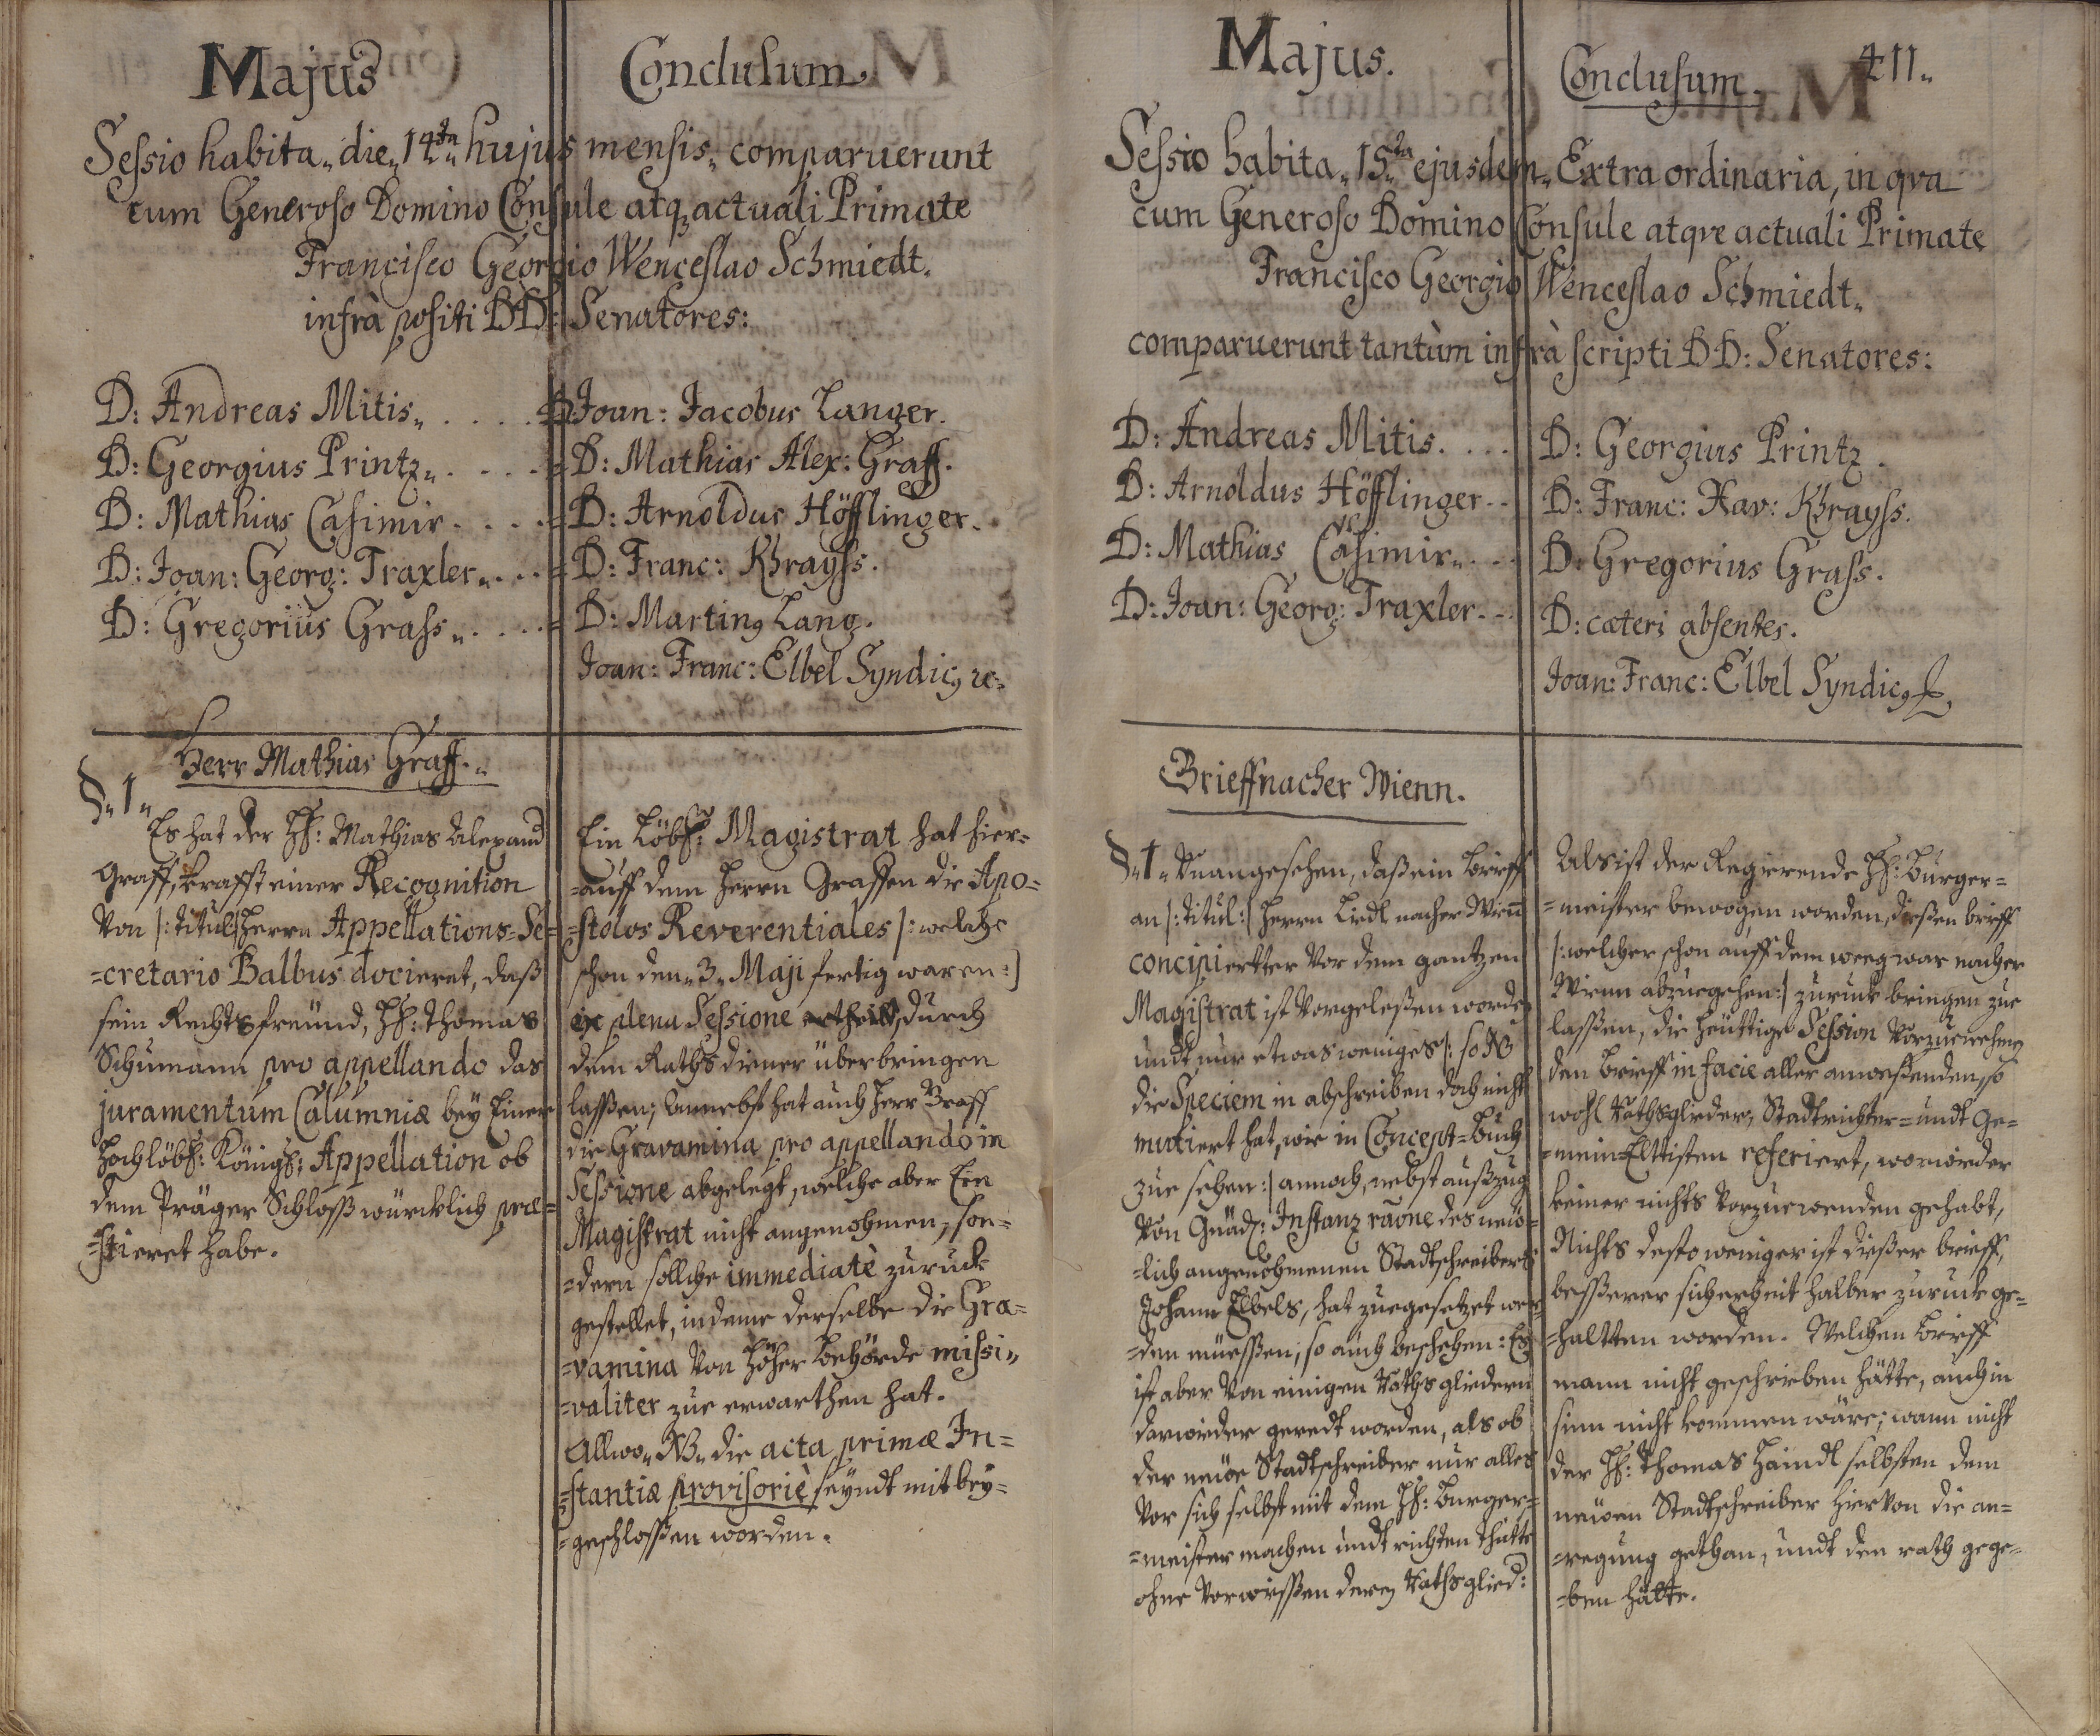 Majus
Conclusum
Sessio habita„ die„ 14„ta„ hujus mensis„ comparuerunt
cum Generoso Domino Consule atq3 actuali Primate
Francisco Georgio Wenceslao Schmiedt.
infrà positi DD: Senatores:
D: Andreas Mitis„ . . . .
D: Georgius Printz„ . . . .
D: Mathias Casimir . . . .
D: Joan: Georg: Traxler„ . . .
D: Gregorius Grass„ . . . .
D Joan: Jacobus Langer.
D: Mathias Alex: Graff.
D: Arnoldus Höfflinger.
D: Franc: Khrayss.
D: Martin9 Lang.
Joan: Franc: Elbel Syndic9 ꝛc.
Herr Mathias Graff.„
§„1„
Es hat der Hℓ: Mathias Alexand
Graff, krafft einer Recognition
Von |: titul:| Herrn Appellations=Se=
=cretario Balbus docieret, daß
sein Rechtsfreünd, Hℓ: Thomas
Schumann pro appellando das
juramentum Calumniæ bey Einer
Hochlöbℓ: Königℓ: Appellation ob
dem Präger Schloss würcklich præ=
=stieret habe.
Ein Löbℓ: Magistrat hat hier=
=auff dem Herrn Graffen die Apo=
=stolos Reverentiales |: welche
schon den„ 3„ Maji fertig waren :|
ex plena Sessione ertheilt, durch
dem Rathsdiener überbringen
lassen; Annebst hat auch Herr Graff
die Gravamina pro appellando in
Sessione abgelegt, welche aber Ein
Magistrat nicht angenohmen, son=
=dern sollche immediatè zuruck
gestellet, indeme derselbe die Gra=
=vamina Von Höher Behörde missi„
=valiter zue erwarthen hat.
Allwo„ NB„ die acta primæ In=
=stantiæ provisoriè seyndt mit bey=
=geschlossen worden.
Majus.
Conclusum.
411.
Sessio habita„ 15„ta ejusdem„ Extra ordinaria, in qva
cum Generoso Domino Consule atqve actuali Primate
Francisco Georgio Wenceslao Schmiedt„
comparuerunt tantùm infrà scripti DD: Senatores:
D: Andreas Mitis. . . .
D: Arnoldus Höfflinger . .
D: Mathias Casimir„ . . .
D: Joan: Georg: Traxler . . .
D: Georgius Printz.
D: Franc: Xav: Khrayss.
D: Gregorius Grass.
D: cæteri absentes.
Joan: Franc: Elbel Syndic9
Brieff nacher Wienn.
§„1„ Unangesehen, daß ein Brieff
an |: titul :| Herrn Liedl nacher Wien̄
concipierter Vor dem gantzen
Magistrat ist Vorgelesen worden
undt nur etwas weniges |: so NB
die Speciem in abschreiben doch nicht
mutiert hat, wie in Concept=Buch
zue sehen :| annoch, nebst außzug
Von Gnädℓ: Instanz raōne des neü=
=lich angenohmenen Stadtschreibers
Johann Elbels, hat zuegesetzet wer=
=den müessen, so auch beschehen: Es
ist aber Von einigen Rathsgliedern
darwider geredt worden, als ob
der neüe Stadtschreiber nur alles
Vor sich selbst mit dem Hℓ: Burger=
=meister machen undt richten thätte
ohne Vorwissen deren Rathsglied:
Als ist der Regierende Hℓ: Burger=
=meister bewogen worden, diesen brieff
|: welcher schon auff dem weeg war nacher
Wienn abzuegehen :| zuruck bringen zue
lassen, die heüttige Session Vorzuenehmen
den Brieff in facie aller anwesenden, so
wohl Rathsglieder, Stadtrichter= undt Ge=
=mein=Elttisten referiert, worwider
keiner nichts Vorzuewenden gehabt,
Nichts desto weniger ist dießer brieff,
besserer sicherheit halber zuruck ge=
=haltten worden. Welchen Brieff
mann nicht geschrieben hätte, auch in
sinn nicht kommen wäre; wann nicht
der Hℓ: Thomas Haindl selbsten dem
neüen Stadtschreiber hierVon die an=
=regung gethan, undt den rath gege=
=ben hätte.